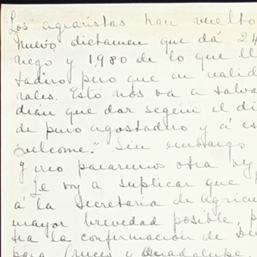 Los agraristas han vuelto
nuevo dictamen que dá 24
riego y 1980 de lo que ll
tadero pero que en realid
rales. Esto nos va a salva
drían que dar según el di
de puro agostadero y á es
welcome." Sin embargo
y creo pararemos otra vez
Le voy a suplicar que
á la Secretaría de Agricu
mayor brevedad posible, p
tra la confirmación de
para Cruces y Guadalupe.